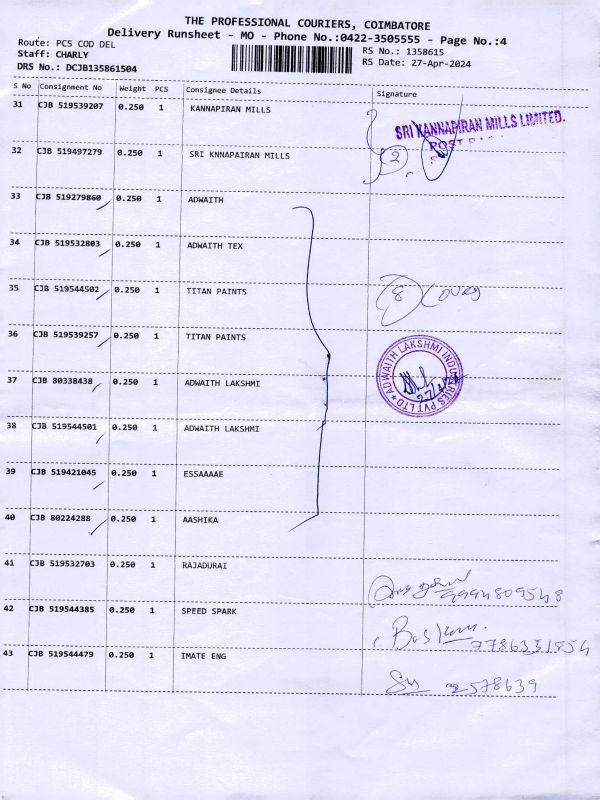 THE PROFESSIONAL COURIERS, COIMBATORE
Delivery Runsheet - MO - Phone No.:0422-3505555 - Page No.:4
Route: PCS COD DEL
Staff: CHARLY
DRS No.: DCJB135861504
RS No.: 1358615
RS Date: 27-Apr-2024
S No Consignment No Weight PCS Consignee Details Signature
31 CJB 519539207 0.250 1 KANNAPIRAN MILLS
SRI KANNAPIRAN MILLS LIMITED.
32 CJB 519497279 0.250 1 SRI KNNAPAIRAN MILLS
2
33 CJB 519279860 0.250 1 ADWAITH
34 CJB 519532803 0.250 1 ADWAITH TEX
35 CJB 519544502 0.250 1 TITAN PAINTS
8
36 CJB 519539257 0.250 1 TITAN PAINTS
ADWAITH LAKSHMI INDUSTRIES PVT LTD
37 CJB 80338438 0.250 1 ADWAITH LAKSHMI
38 CJB 519544501 0.250 1 ADWAITH LAKSHMI
39 CJB 519421045 0.250 1 ESSAAAAE
40 CJB 80224288 0.250 1 AASHIKA
41 CJB 519532703 0.250 1 RAJADURAI
9994809548
42 CJB 519544385 0.250 1 SPEED SPARK
7786331854
43 CJB 519544479 0.250 1 IMATE ENG
2578639